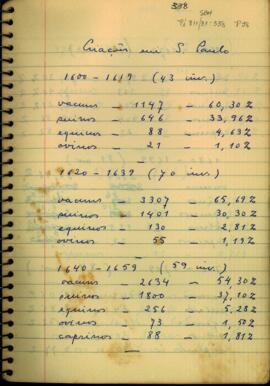 338
SBH
Pi 211/21:338 P36
Criações em S. Paulo
1600 - 1619 (43 inv.)
vacuns - 1147 - 60,30%
suinos - 646 - 33,96%
equinos - 88 - 4,63%
ovinos - 21 - 1,10%
1620 - 1639 (70 inv.)
vacuns 3307 - 65,69%
suinos - 1401 - 30,30%
equinos - 130 - 2,81%
ovinos - 55 - 1,19%
1640 - 1659 (59 inv.)
vacuns - 2634 - 54,30%
suinos - 1800 - 37,10%
equinos - 256 - 5,28%
ovinos - 73 - 1,50%
caprinos - 88 - 1,81%